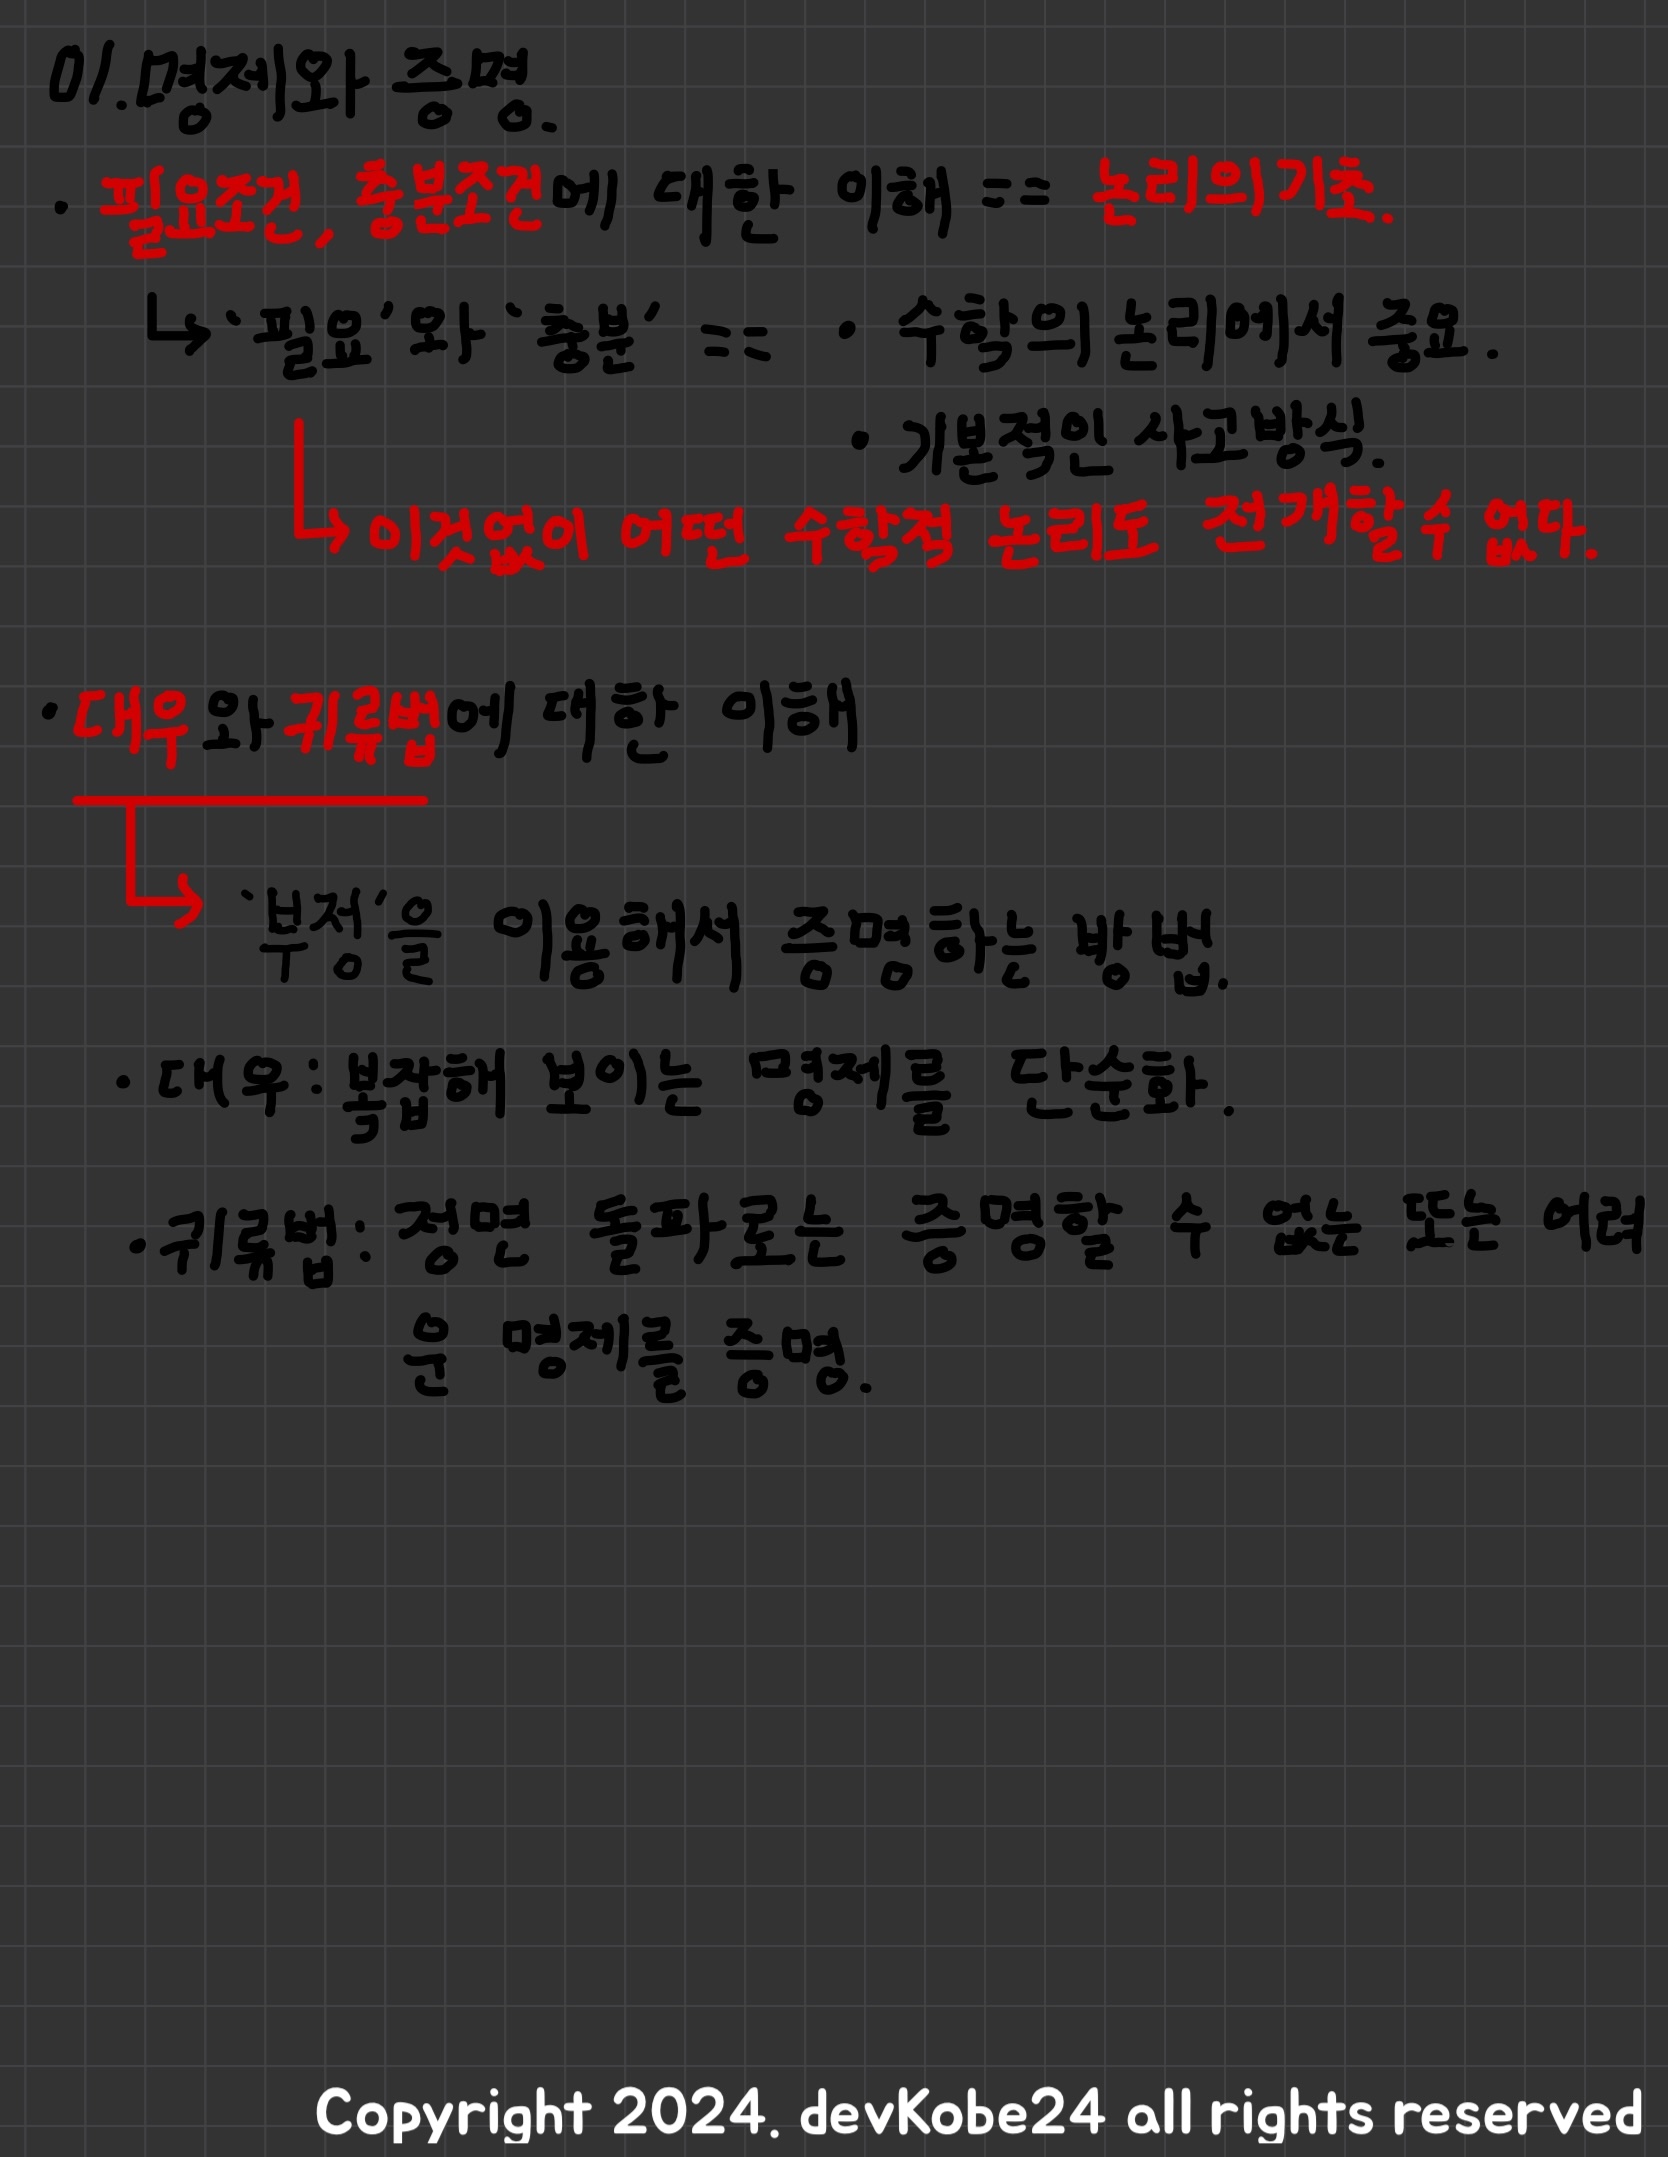 01. 명제와 증명.
· 필요조건, 충분조건에 대한 이해 == 논리의 기초.
↳ '필요'와 '충분' == · 수학의 논리에서 중요.
· 기본적인 사고방식.
↳ 이것없이 어떤 수학적 논리도 전개할 수 없다.
· 대우와 귀류법에 대한 이해
↳ '부정'을 이용해서 증명하는 방법.
· 대우: 복잡해 보이는 명제를 단순화.
· 귀류법: 정면 돌파로는 증명할 수 없는 또는 어려
운 명제를 증명.
Copyright 2024. devKobe24 all rights reserved